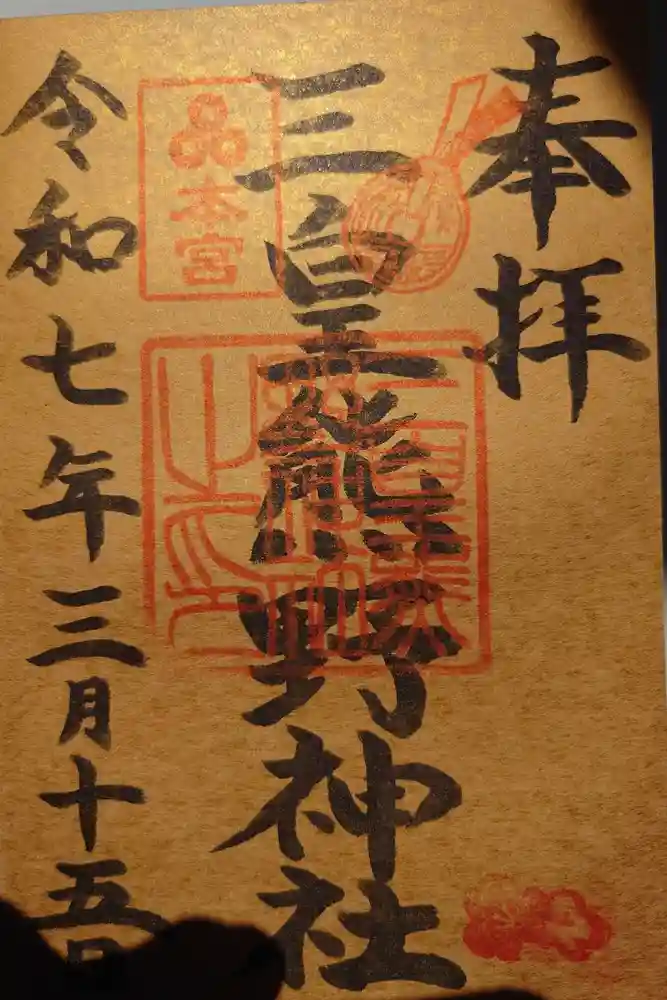 奉拝
三皇熊野神社
本宮
令和七年三月十五日